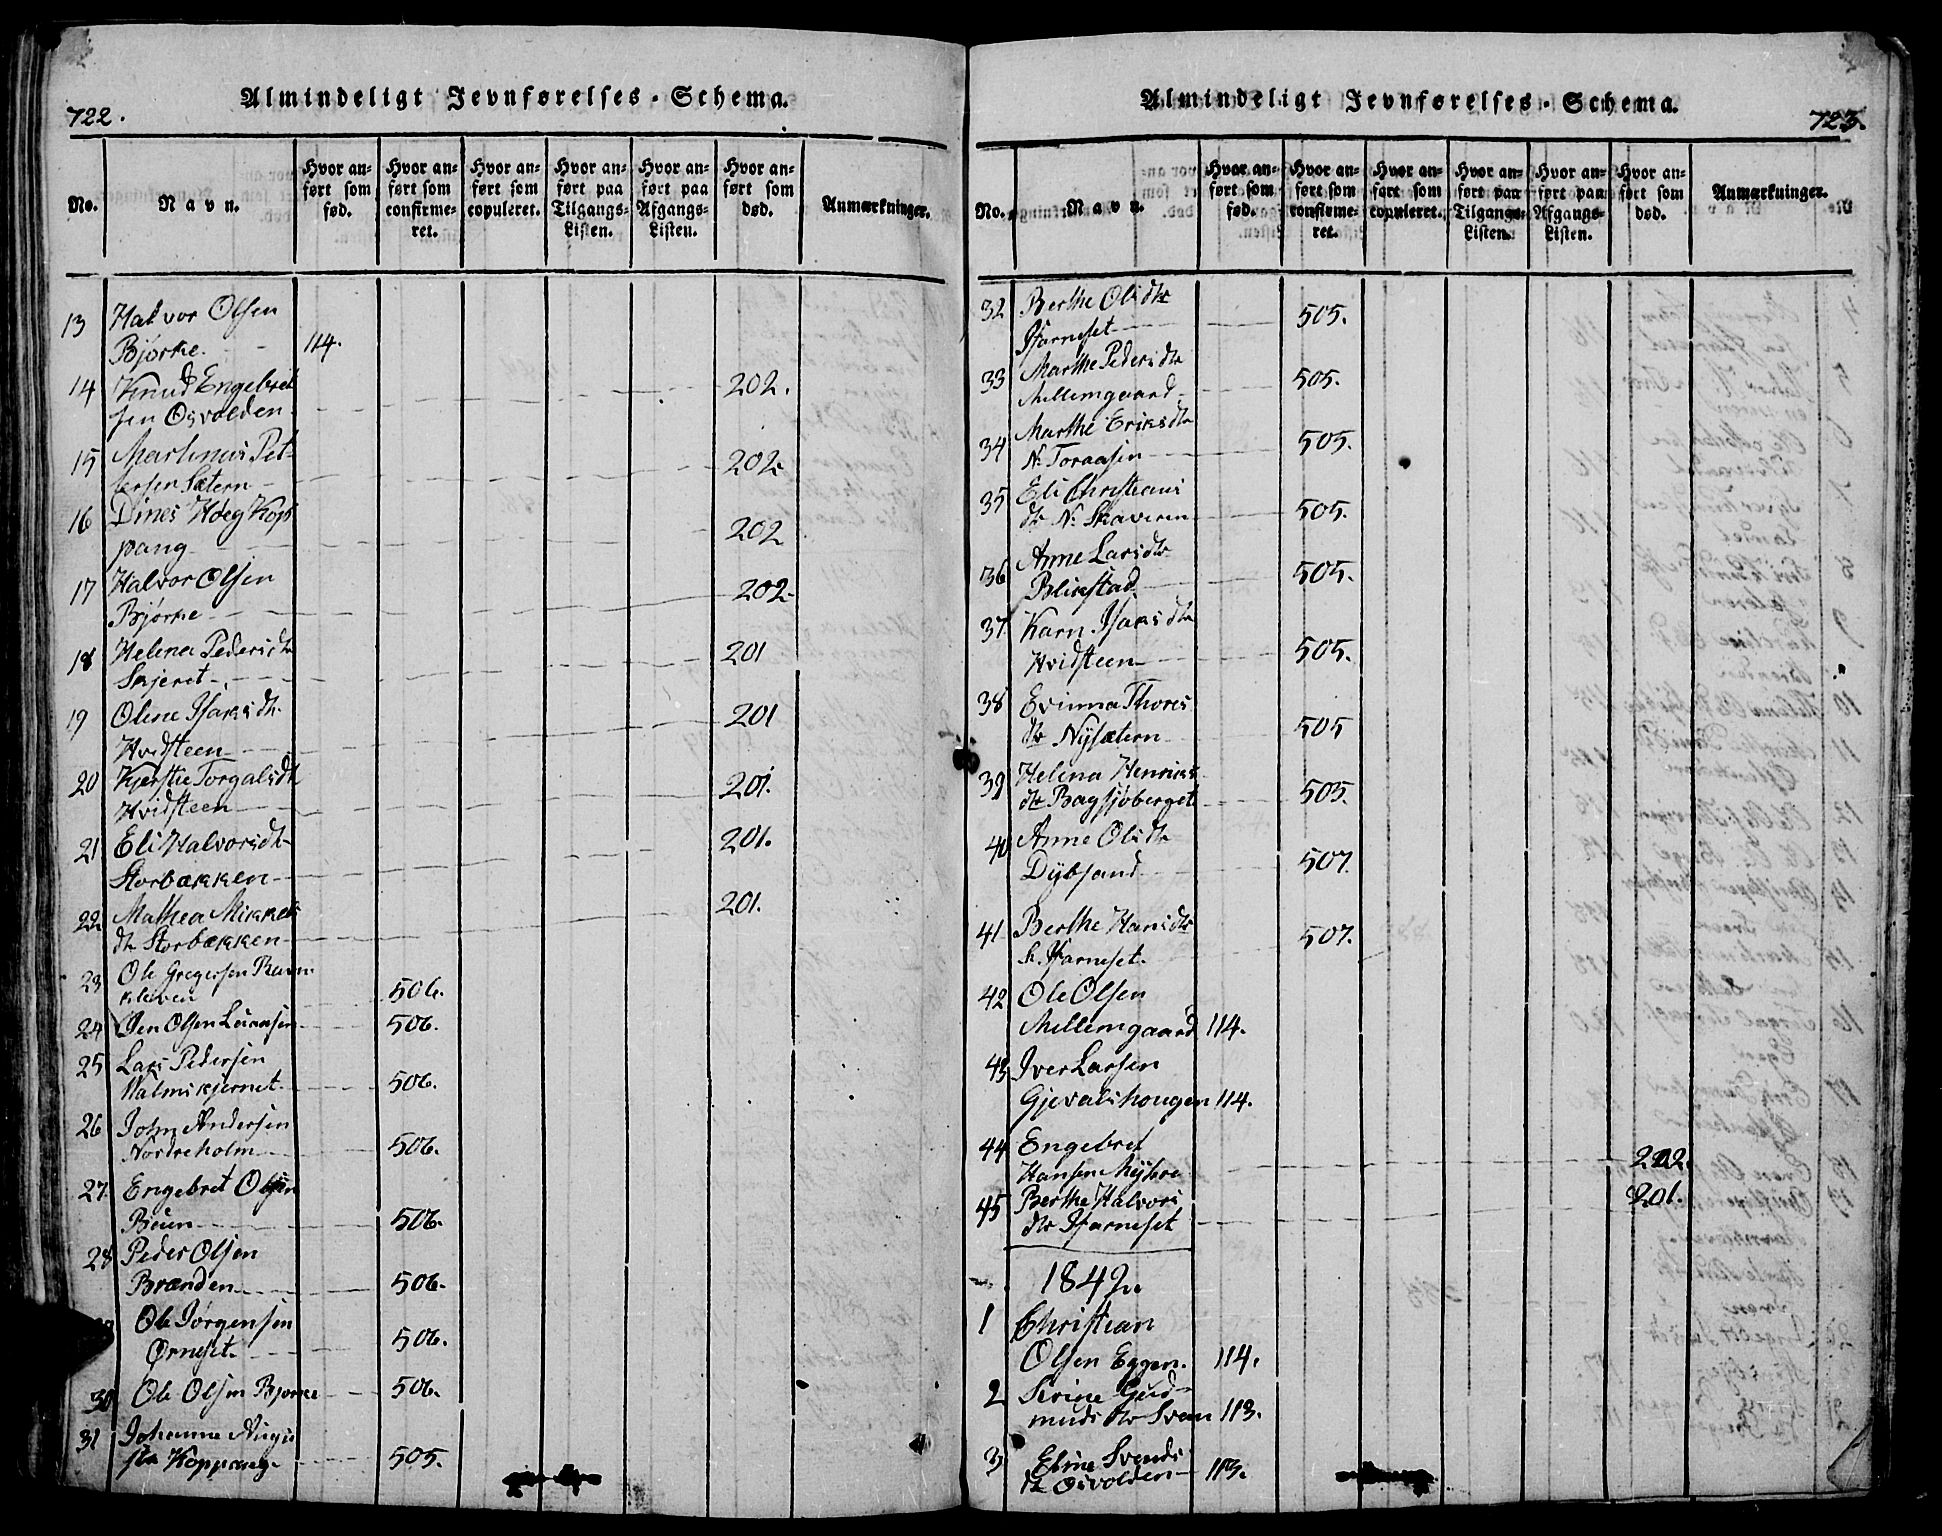 722.
Almindeligt Jevnførelses-Schema.
No.
Navn.
Hvor an-
ført som
fød.
Hvor an-
ført som
confirme-
ret.
Hvor an-
ført som
copuleret.
Hvor an-
ført paa
Tilgangs-
Listen.
Hvor an-
ført paa
Afgangs-
Listen.
Hvor an-
ført som
død.
Anmærkninger.
13 Halvor Olsen
Bjørke. 114.
14 Knud Engebret
sen Osvolden 202.
15 Marhinus Pet-
tersen Sætern 202.
16 Dines Høeg Kop
pang 202
17 Halvor Olsen
Bjørke 202.
18 Helena Pedersdtr
Skjeret 201
19 Oline Isaksdtr
Hvidsteen 201
20 Kjerstie Torgalsdtr
Hvidsteen 201.
21 Eli Halvorsdtr
Storbækken 201.
22. Mathea Mikkels
dtr Storbækken 201.
23 Ole Gregersen Ravn
kleven 506.
24 Jen Olsen 506.
25 Lars Pedersen
Malmkjernet 506.
26 John Andersen
Nordreholm 506.
27. Engebret Olsen
506.
28 Peder Olsen
Brænden 506.
Ole Jørgensen
Ørneset. 506.
30 Ole Olsen Bjørke 506.
31 Johanne Augu
sta Koppang 505.
Almindeligt Jevnførelses-Schema.
723.
No.
Navn.
Hvor an-
ført som
fød.
Hvor an-
ført som
confirme-
ret.
Hvor an-
ført som
copuleret.
Hvor an-
ført paa
Tilgangs-
Listen.
Hvor an-
ført paa
Afgangs-
Listen.
Hvor an-
ført som
død.
Anmærkninger.
32 Berthe Olsdtr
505.
33 Marthe Pedersdtr
Mellemgaard 505.
34 Marthe Eriksdtr
N. Toraasen 505.
35 Eli Christians
dtr N. Skaveren 505.
36 Anne Larsdtr
Blikstad 505.
37 Karn Isaksdtr
Hvidsteen 505.
38 Evinna Thores
dtr Nysætern 505
39 Helena Henriks
dtr Bagsjøberget 505.
40 Anne Olsdtr
Dybsand 507.
41 Berthe Hansdtr
507.
42 Ole Olsen
Mellemgaard 114.
43 Iver Larsen
Gjevalshougen 114.
44 Engebret
Hansen Mysere 202.
45 Berthe Halvors
dtr 201.
1842.
1 Christian
Olsen Eggen. 114.
2 Serine Gud-
munds dtr 113.
3 Eline Svends
dtr Osvolden 113.